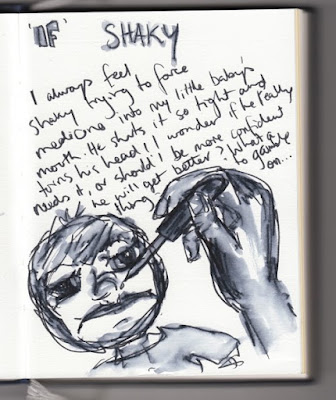 'OF' SHAKY
I always feel
shaky trying to force
medicine into my little baby's
mouth. He shuts it so tight and
turns his head! I wonder if he really
needs it, or should I be more confident
he will get better? What a
thing to gamble
on...